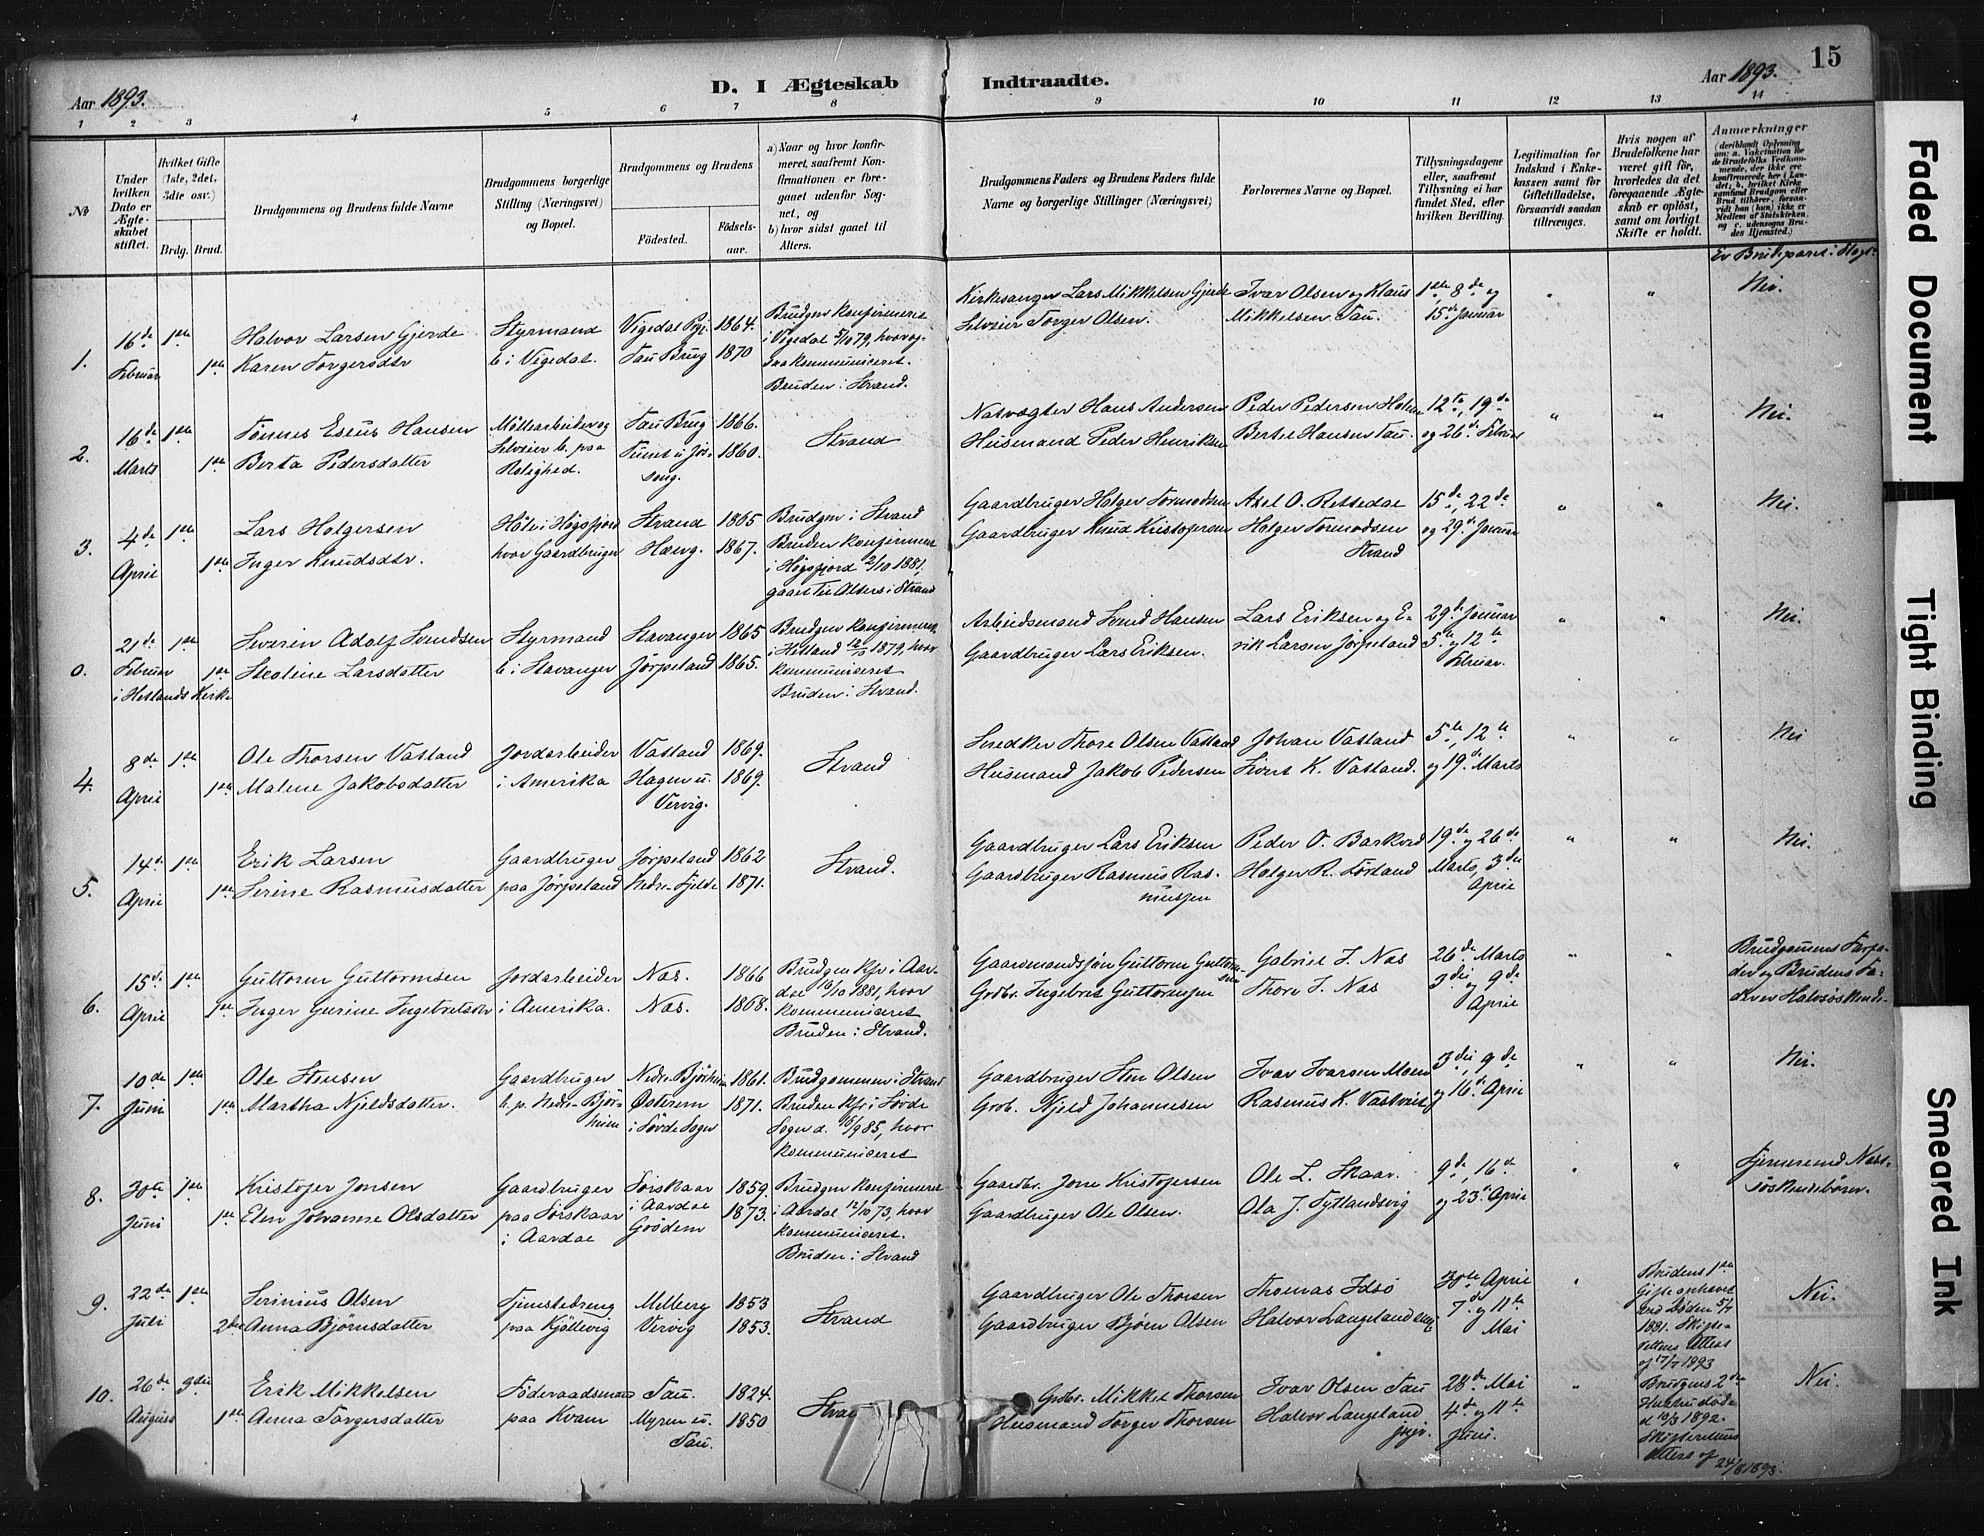 15
Aar 1893.
D. I Ægteskab Indtraadte.
Aar 1893.
1 2 3 4 5 6 7 8 9 10 11 12 13 14
No
Under hvilken Dato er Ægteskabet stiftet.
Hvilket Gifte (1ste, 2det, 3dte osv.)
Brdg. Brud.
Brudgommens og Brudens fulde Navne
Brudgommens borgerlige Stilling (Næringsvei) og Bopæl.
Brudgommens og Brudens
Fødested. Fødselsaar.
a) Naar og hvor konfirmeret, saafremt Konfirmationen er foregaaet udenfor Sognet, og
b) hvor sidst gaaet til Alters.
Brudgommens Faders og Brudens Faders fulde Navne og borgerlige Stillinger (Næringsvei)
Forlovernes Navne og Bopæl.
Tillysningsdagene eller, saafremt Tillysning ei har fundet Sted, efter hvilken Bevilling.
Legitimation for Indskud i Enkekassen samt for Giftetilladelse, forsaavidt saadan tiltrænges.
Hvis nogen af Brudefolkene har været gift før, hvorledes da det foregaaende Ægteskab er opløst, samt om lovligt Skifte er holdt.
Anmærkninger
Er Brudeparret i Slægt
1. 16de Februar 1ste 1ste
Halvor Larsen Gjerde
Karen Torgersdtr
Styrmand
b. i Vigedal.
1864.
Tau Brug 1870
Brudgm konfirmeret
i Vigedal 5/10 79, hvor og-
saa kommuniceret.
Bruden i Strand.
Kirkesanger Lars Mikkelsen Gjerde
Selveier Torger Olsen.
Ivar Olsen og Klaus
Mikkelsen Tau.
1ste, 8de og
15de Januar
Nei.
2. 16de Marts 1ste 1ste
Tønnes Eseus Hansen
Berta Pedersdatter
Møllearbeider og
Selveier b. paa
Rolighed.
Tau Brug 1866.
1860.
Strand
Hans Andersen
Husmand Peder Henriksen
Peder Pedersen Holen
Bertel Hansen Tau.
12te, 19de
og 26de Februar
Nei.
3. 4de April 1ste 1ste
Lars Holgersen
Inger Knudsdtr.
Høle i Høgsfjord
hvor Gaardbruger
Strand 1865
1867.
Brudgm i Strand
Bruden konfirmeret
i Høgsfjord 2/10 1881,
gaaet til Alters i Strand
Gaardbruger Holger Tormodsen
Gaardbruger Knud Kristofersen
Axel O. Rettedal
Holger Tormodsen
Strand
15de, 22de
og 29de Januar
Nei.
0. 21de Februar
i Hetlands Kirke
1ste 1ste
Severin Adolf Svendsen
Steoline Larsdatter
Styrmand
b. i Stavanger
Stavanger 1865
Jørpeland 1865.
Brudgm konfirmeret
i Hetland 12/10 1879, hvor
kommuniceret
Bruden i Strand.
Arbeidsmand Svend Hansen
Gaardbruger Lars Eriksen.
Lars Eriksen og E-
rik Larsen Jørpeland
29de Januar
5te og 12te
Februar.
Nei.
4. 8de April 1ste 1ste
Ole Thorsen Vatland
Malene Jakobsdatter
Jordarbeider
i Amerika
Vatland 1869.
Hagen u. 1869.
Vervig.
Strand
Snedker Thore Olsen Vatland
Husmand Jakob Pedersen
Johan Vatland
Sivert K. Vatland.
5te, 12te
og 19de Marts
Nei
5. 14de April 1ste 1ste
Erik Larsen
Serine Rasmusdatter
Gaardbruger
paa Jørpeland
Jørpeland 1862
Nedre Fjelde 1871.
Strand.
Gaardbruger Lars Eriksen
Gaardbruger Rasmus Ras-
mussen
Peder O. Barkved
Holger R. Førland
19de og 26de
Marts, 3die
April
Nei.
6. 15de April 1ste 1ste
Guttorm Guttormsen
Inger Gurine Ingebretsdtr
Jordarbeider
i Amerika.
Nas. 1866
Nas. 1868.
Brudgm kfr i Aar-
dal 16/10 1881, hvor
kommuniceret
Bruden i Strand.
Gaardmandssøn Guttorm Guttorm-
sen
Grdbr. Ingebret Guttormsen
Gabriel I. Nas
Thore I. Nas
26de Marts
3die og 9de
April
Brudgomens Farfa-
der og Brudens Fa-
der er Halvsøskende.
7. 10de Juni 1ste 1ste
Ole Stensen
Martha Njeldsdatter.
Gaardbruger
b. p. Nedre Bjør-
heim
Nedre Bjørheim 1861.
1871.
i Søvde Sogn
Brudgommen i Strand
Bruden kfr i Søvde
Sogn d. 16/9 85, hvor
kommuniceret
Gaardbruger Sten Olsen
Grdb. Njeld Johannesen
Ivar Ivarsen Moen
Rasmus K. Vastveit
3die, 9de
og 16de April
Nei.
8. 30te Juni 1ste 1ste
Kristofer Jonsen
Elen Johanne Olsdatter
Gaardbruger
paa Tørskaar
i Aardal
Tørskaar 1859.
i Aardal 1873.
Grødem
Brudgm konfirmeret
i Aardal 12/10 73, hvor
kommuniceret.
Bruden i Strand
Gaardbr. Jone Kristofersen
Gaardbruger Ole Olsen.
Ole L. Skaar.
Ola J. Tytlandsvig
9de, 16de
og 23de April
Næst-
søskendebørn.
9. 22de Juli 1ste 2den
Serinius Olsen
Anna Bjørnsdatter
Tjenestedreng
paa Kjøllevig
Melberg 1853
Vervig 1853.
Strand
Gaardbruger Ole Thorsen
Gaardbruger Bjørn Olsen
Thomas Idsø
Halvor Langeland
30te April
7de og 11te
Mai
Brudens 1ste
Gifte ophævet
ved Døden 5/7
1881. Skifte-
rettens Attest
af 17/7 1893
Nei.
10. 26de August 3die 1ste
Erik Mikkelsen
Anna Torgersdatter
Føderaadsmand
paa Kvam
Tau. 1824.
Myren u. 1850
Tau.
Grdbr. Mikkel Thorsen
Husmand Torger Thorsen
Ivar Olsen Tau
Halvor Langeland
jnr.
28de Mai
4de og 11te
Juni.
Brudgms 2den
Hustru døde
d 10/3 1892.
Skifterettens
Attest af 24/8 1893.
Nei.
Faded Document
Tight Binding
Smeared Ink